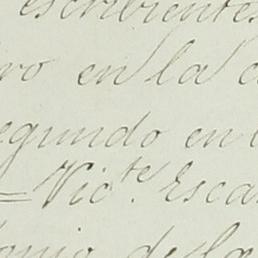 escribientes
ro en la
egundo en
= Vic.te Esca
onio de la